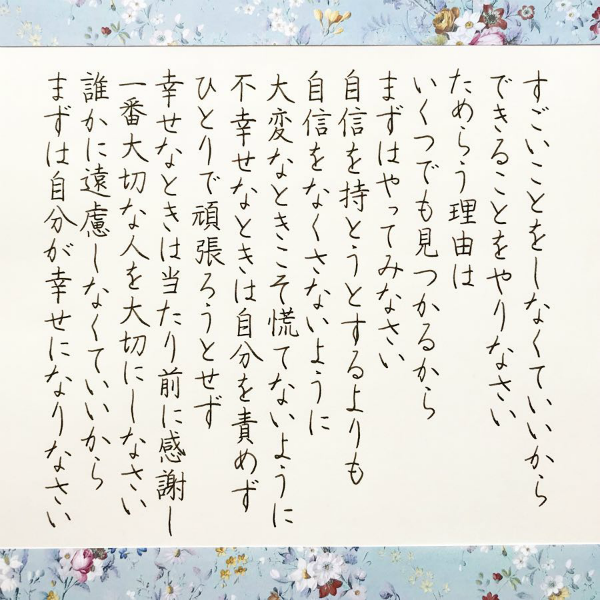 すごいことをしなくていいから
できることをやりなさい
ためらう理由は
いくつでも見つかるから
まずはやってみなさい
自信を持とうとするよりも
自信をなくさないように
大変なときこそ慌てないように
不幸せなときは自分を責めず
ひとりで頑張ろうとせず
幸せなときは当たり前に感謝し
一番大切な人を大切にしなさい
誰かに遠慮しなくていいから
まずは自分が幸せになりなさい